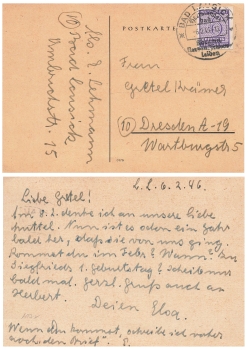 Abs. E. Lehmann
(10) Bad Lausick
Umbrechtstr. 15
POSTKARTE
BAD LAUSICK
Frau
Gretel Krämer
(10) Dresden A-19
Wartburgstr. 5
L. L. 6. 2. 46.
Liebe Gretel!
Am 8. 2. denke ich an unsere liebe
Mutti. Nun ist es oden ein Jahr
bald her, daß sie von uns ging.
Kommst du im Febr.? Wann? Zu
Siegfrieds 1. Geburtstag? Schreib uns
bald mal. Herzl. Gruß auch an
Herbert.
Deine Elsa.
Wenn du kommst, schreibe ich vorher
noch den Brief.